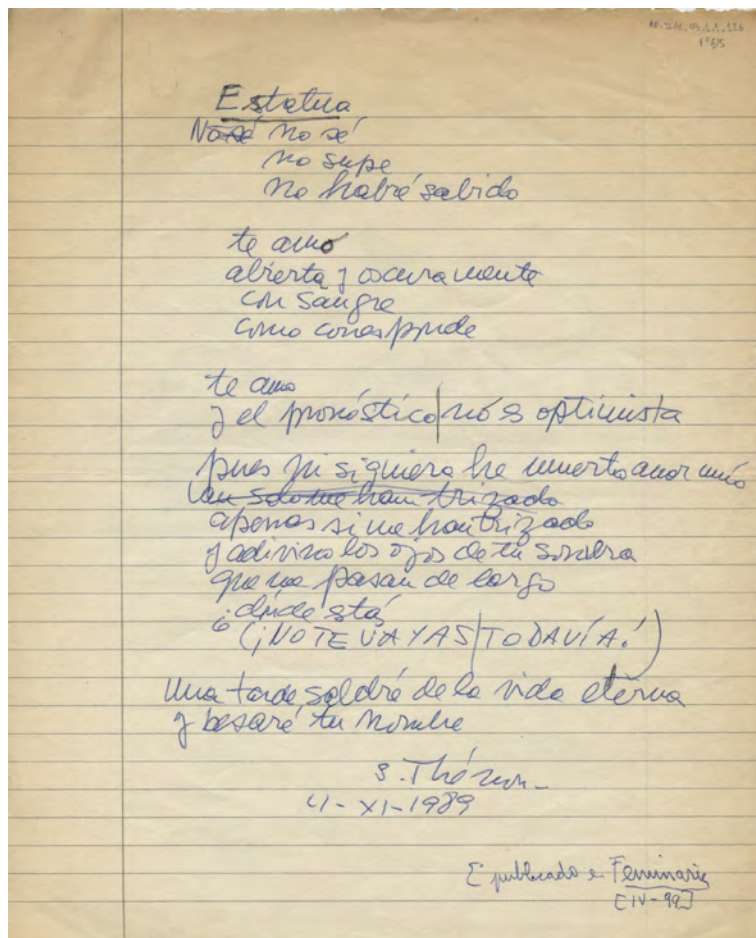 AR.IIAC.05.1.1.126
Fº65
Estatua
No sé no sé
no supe
no habré sabido
te amo
abierta y oscuramente
con sangre
como corresponde
te amo
y el pronóstico|no es optimista
pues ni siquiera he muerto amor mío
tan solo me han trizado
apenas si me han trizado
y adivino los ojos de tu sombra
que me pasan de largo
¿dónde está
(¡NO TE VAYAS|TODAVÍA!)
Una tarde saldré de la vida eterna
y besaré tu nombre
S. Thénon-
4-XI-1989
publicado e. Feminaria
[IV-99]